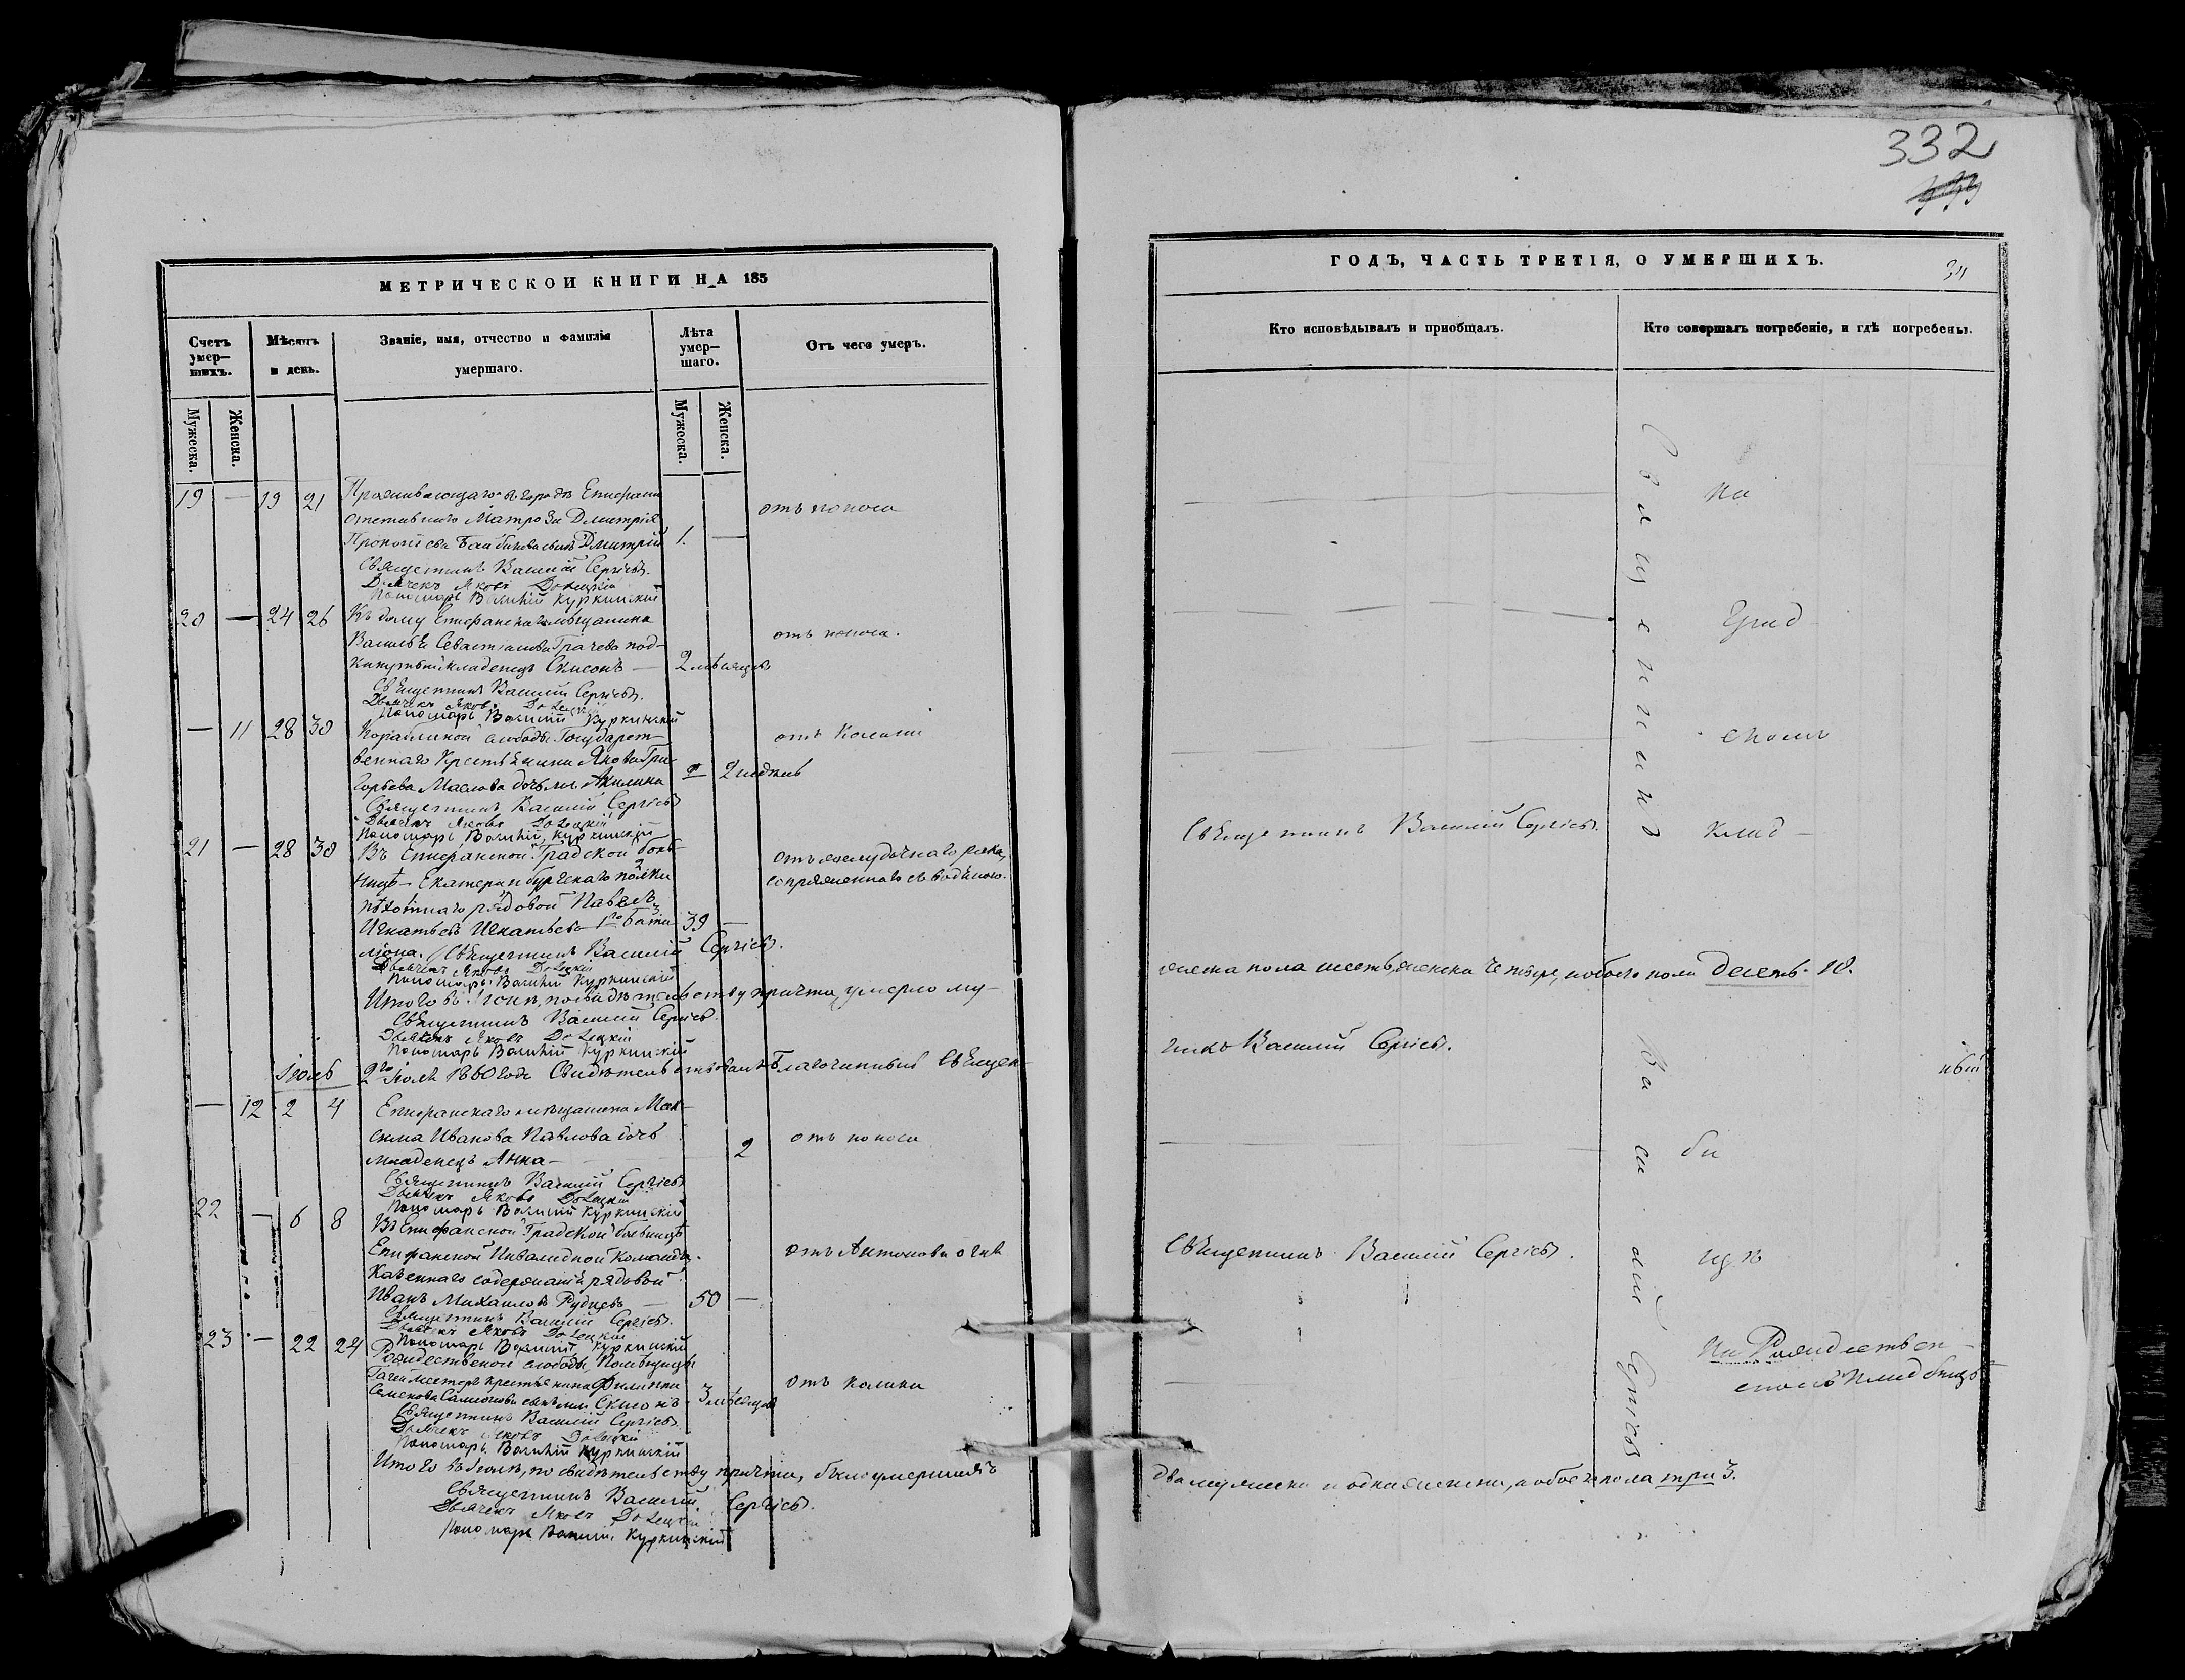 332
МЕТРИЧЕСКОЙ КНИГИ НА 185
Счетъ умер-шихъ.
Мѣсяцъ и день.
Званіе, имя, отчество и фамилія умершаго.
Лѣта умер-шаго.
Отъ чего умеръ.
Мужеска.
Женска.
Мужеска.
Женска.
19 — 19 21 Проживающаго въ городѣ Епифани
отставнаго Матроза Дмитрія
отъ поноса
сынъ Дмитрій 1. —
Священникъ Василій Сергіевъ.
Дьячекъ Яковъ Долецкій
Пономарь Василій Куркинскій
20 — 24 26 Къ дому Епифанскаго мѣщанина
Василья Севастьянова Грачева под-
отъ поноса.
кинутый младенецъ Симонъ — 2 мѣсяцовъ
Священникъ Василій Сергіевъ.
Дьячекъ Яковъ Долецкій
Пономарь Василій Куркинскій
— 11 28 30 слободы Государст-
веннаго Крестьянина Якова Гри-
горьева Маслова дочь мл. Акилина — 2 недѣль
Священникъ Василій Сергіевъ
Дьячекъ Яковъ Долецкій
Пономарь Василій Куркинскій
21 — 28 30 Въ Епифанской Градской боль-
ницѣ Екатеринбургскаго полка
пѣхотнаго рядовой Павелъ
Игнатьевъ Игнатьевъ 1го Бата- 39 —
ліона. Священникъ Василій Сергіевъ.
Дьячекъ Яковъ Долецкій
Пономарь Василій Куркинскій
Итого въ Іюнѣ, по свидѣтельству причта, умерло му-
Священникъ Василій Сергіевъ.
Дьячекъ Яковъ Долецкій
Пономарь Василій Куркинскій
Іюль
2го Іюля 1860 года Свидѣтельствовалъ Благочинный Священ-
— 12 2 4 Епифанскаго мѣщанина Мак-
сима Иванова Павлова дочь
отъ поноса
младенецъ Анна — 2
Священникъ Василій Сергіевъ
Дьячекъ Яковъ Долецкій
Пономарь Василій Куркинскій
22 — 6 8 Въ Епифанской Градской больницѣ
Епифанской Инвалидной Команды
отъ Антонова огня
Казеннаго содержанія рядовой
Иванъ Михаиловъ Рудневъ — 50 —
Священникъ Василій Сергіевъ.
Дьячекъ Яковъ Долецкій
Пономарь Василій Куркинскій
23 — 22 24 Рождественской слободы, Помѣщицы
крестьянина Филиппа
Семенова сынъ мл. Симонъ 3 мѣсяцовъ
Священникъ Василій Сергіевъ
Дьячекъ Яковъ Долецкій
Пономарь Василій Куркинскій
Итого въ Іюлѣ, по свидѣтельству причта, было умершихъ
Священникъ Василій Сергіевъ.
Дьячекъ Яковъ Долецкій
Пономарь Василій Куркинскій
ГОДЪ, ЧАСТЬ ТРЕТІЯ, О УМЕРШИХЪ.
Кто исповѣдывалъ и пріобщалъ.
Кто совершалъ погребеніе, и гдѣ погребены.
Священникъ
На
Град
скомъ
Священникъ Василій Сергіевъ.
клад
жеска пола шесть, женска четыре, и обоего пола десять. 10.
никъ Василій Сергіевъ.
Василій Сергіевъ
би
щѣ
Священникъ Василій Сергіевъ.
На Рождествен-
скомъ кладбищѣ
два мужеска и одна женска, а обоего пола три 3.